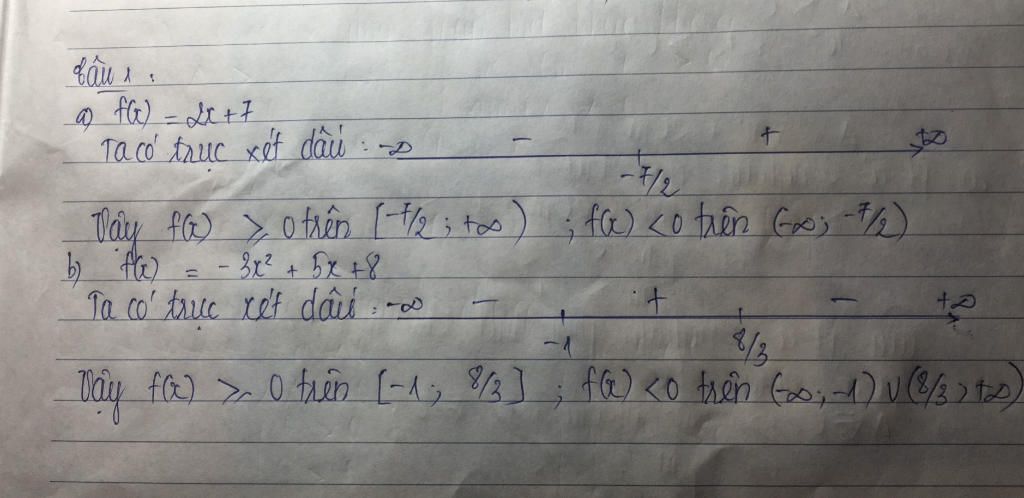 Câu 1 :
a) f(x) = 2x + 7
Ta có trục xét dấu : -∞ - -7/2 + +∞
Vậy f(x) ≥ 0 trên [-7/2 ; +∞) ; f(x) < 0 trên (-∞; -7/2)
b) f(x) = - 3x² + 5x + 8
Ta có trục xét dấu : -∞ - -1 + 8/3 - +∞
Vậy f(x) ≥ 0 trên [-1 ; 8/3] ; f(x) < 0 trên (-∞; -1) ∪ (8/3 ; +∞)